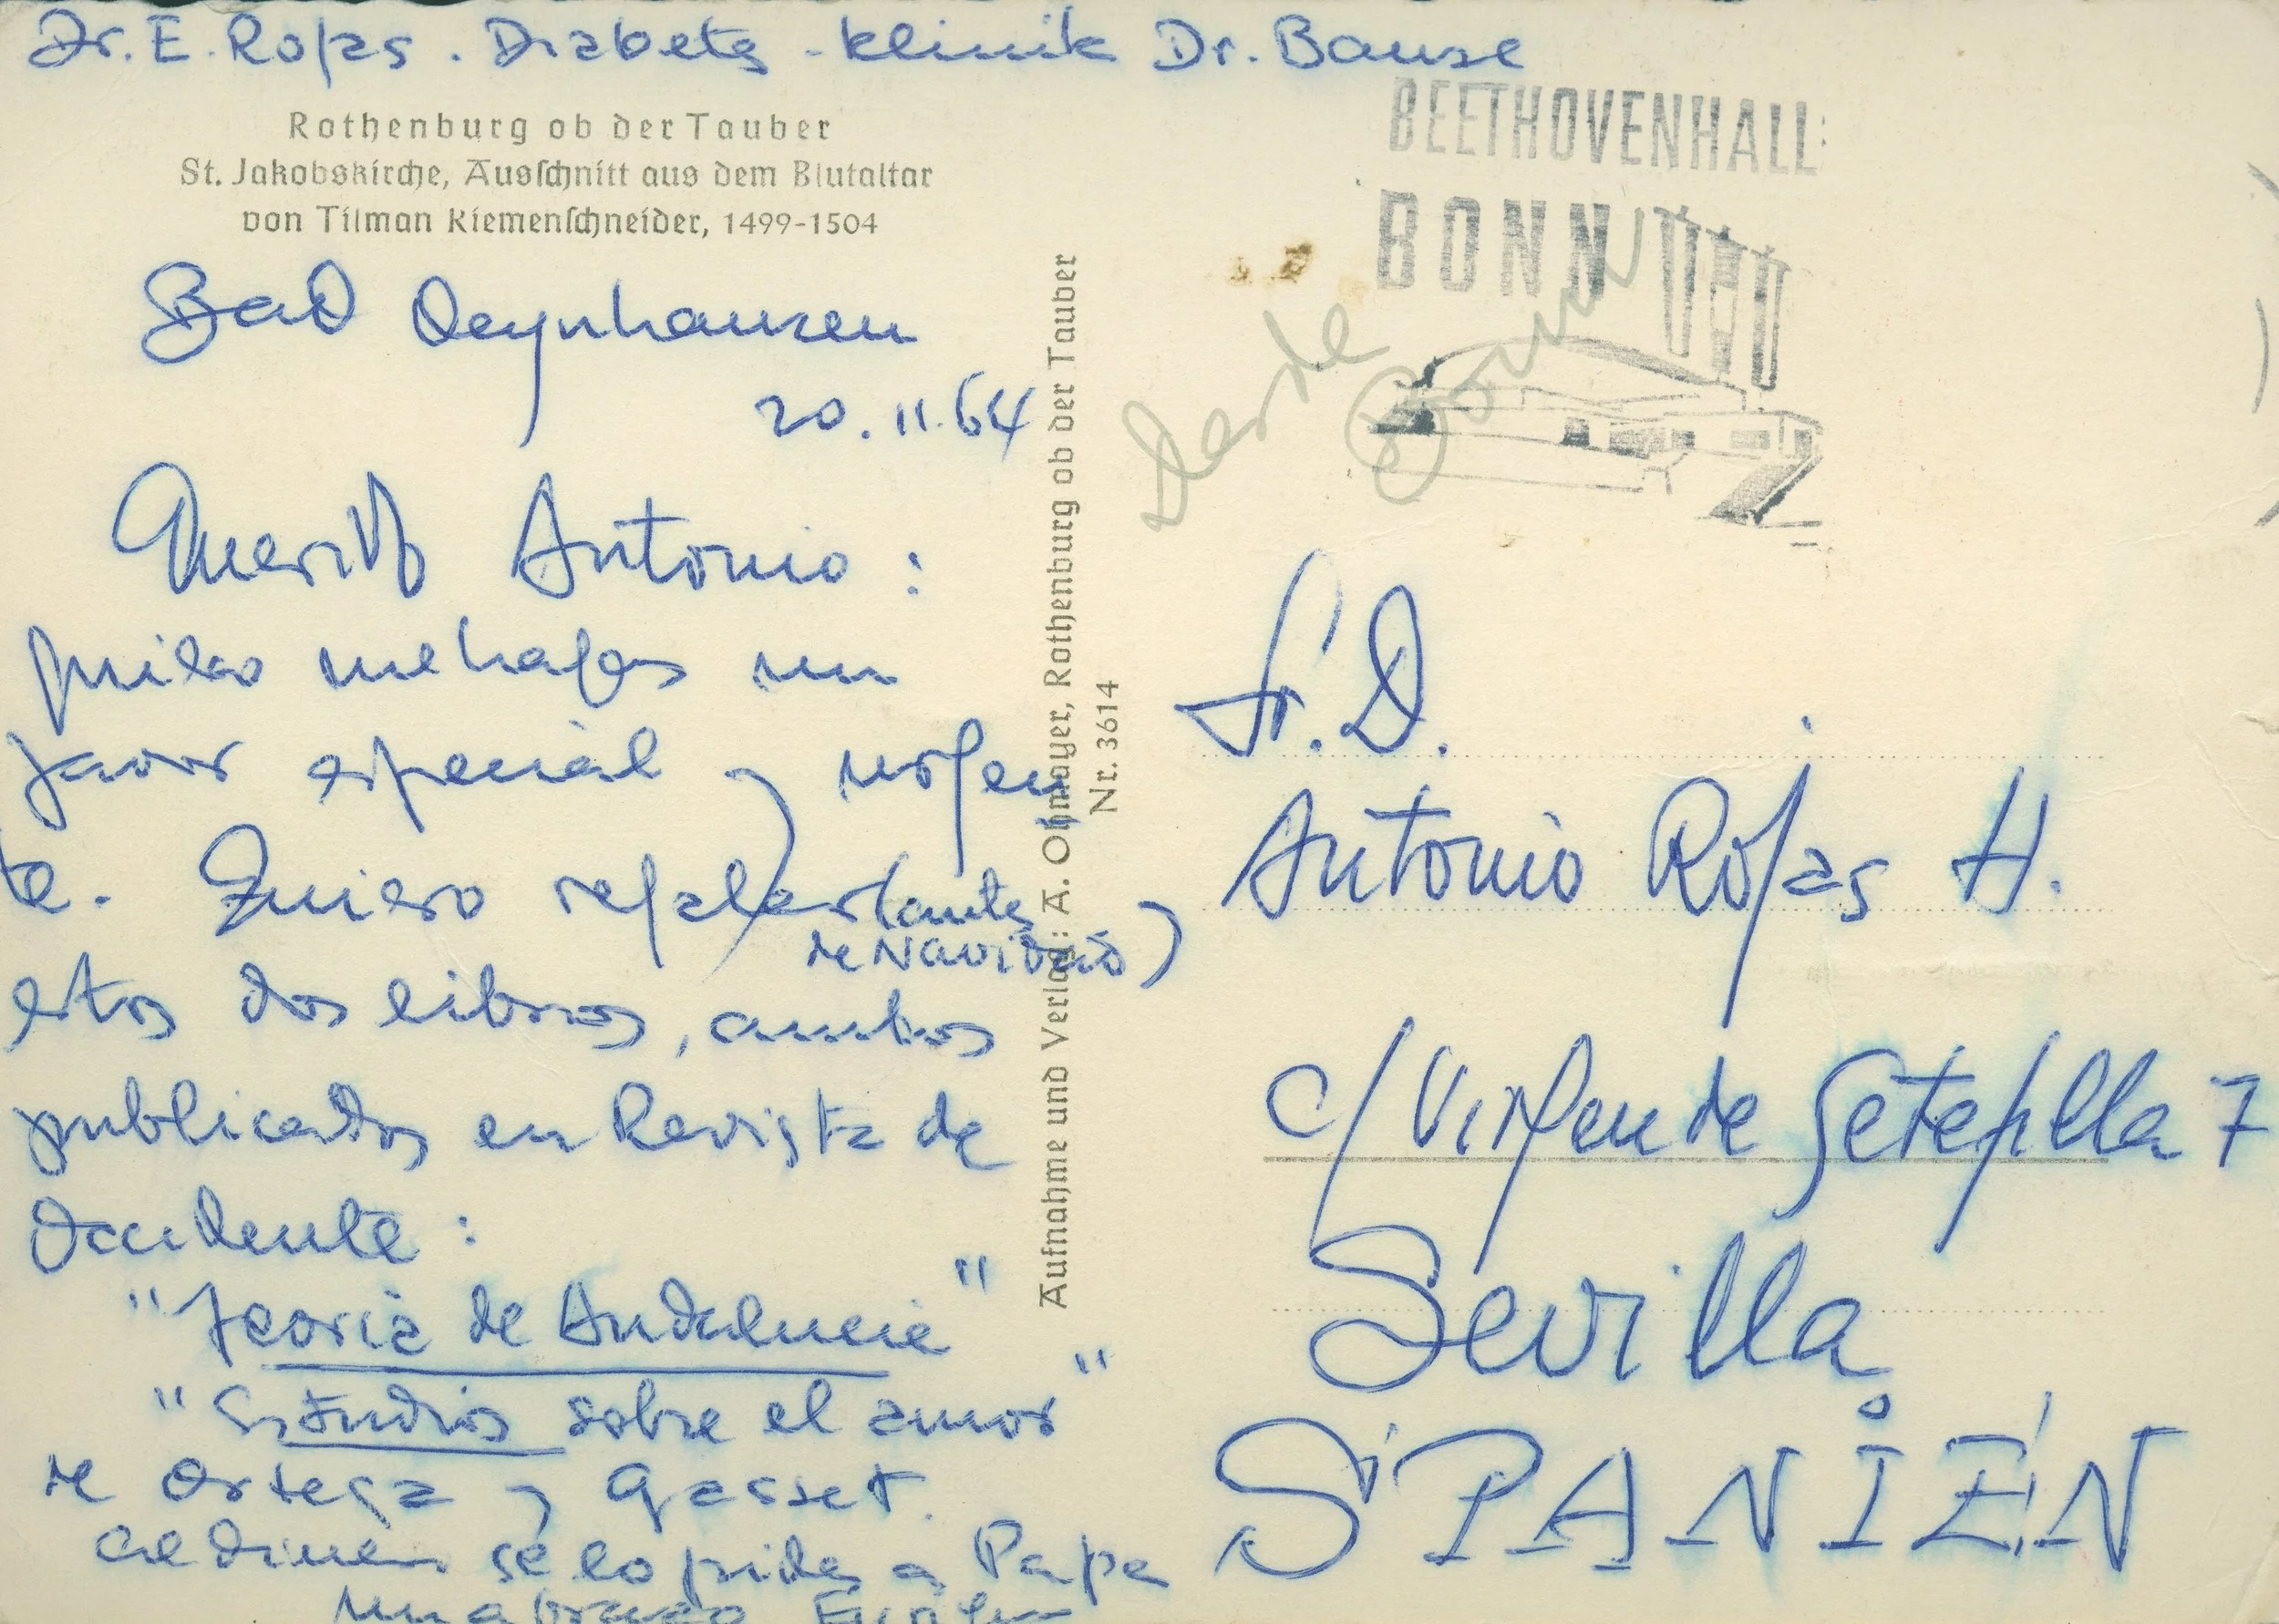 Dr. E. Rojas. Diabetes-Klinik Dr. Bause
Rothenburg ob der Tauber
St. Jakobskirche, Ausschnitt aus dem Blutaltar
von Tilman Riemenschneider, 1499-1504
Bad Oeynhausen
20.11.64
Querido Antonio:
quiero me hagas un
favor especial y urgen
te. Quiero regalar (antes
de Navidad)
estos dos libros, ambos
publicados en Revista de
Occidente:
"Teoría de Andalucía"
"Estudios sobre el amor"
de Ortega y Gasset.
el dinero se lo pides a Papa
un abrazo
Aufnahme und Verlag: A. Ohmayer, Rothenburg ob der Tauber
Nr. 3614
BEETHOVENHALL
BONN
desde
Bonn
Sr. D.
Antonio Rojas H.
c/ Virgen de Setefilla 7
Sevilla
SPANIEN